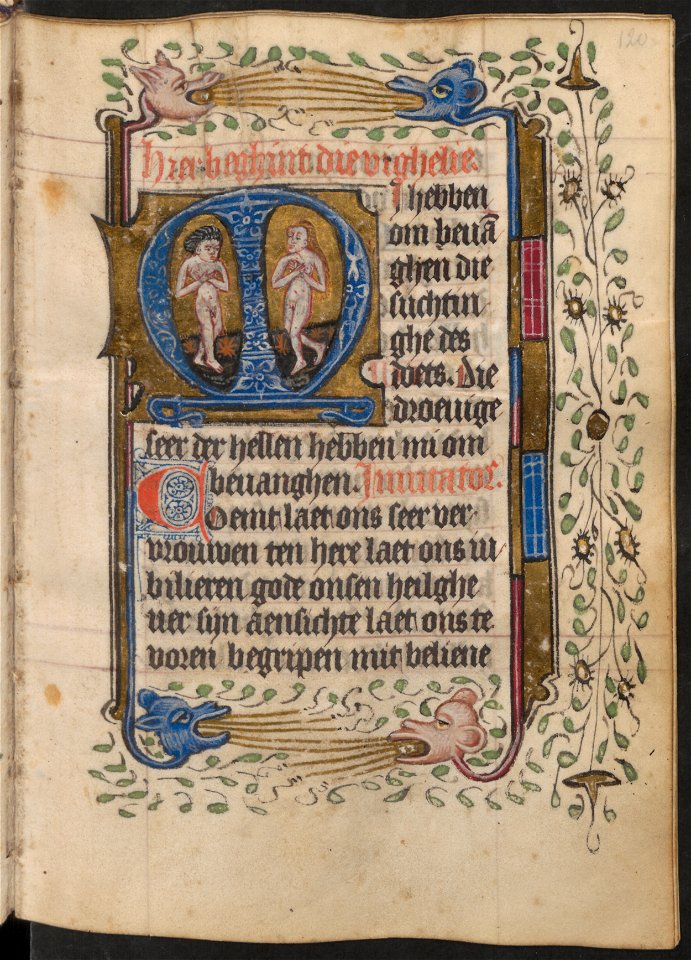 120
hier beghint die vighelie.
MI hebben
om beuā
ghen die
suchtin
ghe des
doets. Die
droeuige
seer der hellen hebben mi om
beuanghen. Inuitator.
Coemt laet ons seer ver
vrouwen ten here laet ons iu
bilieren gode onsen heilghe
uer sijn aensichte laet ons te
voren begripen mit beliene